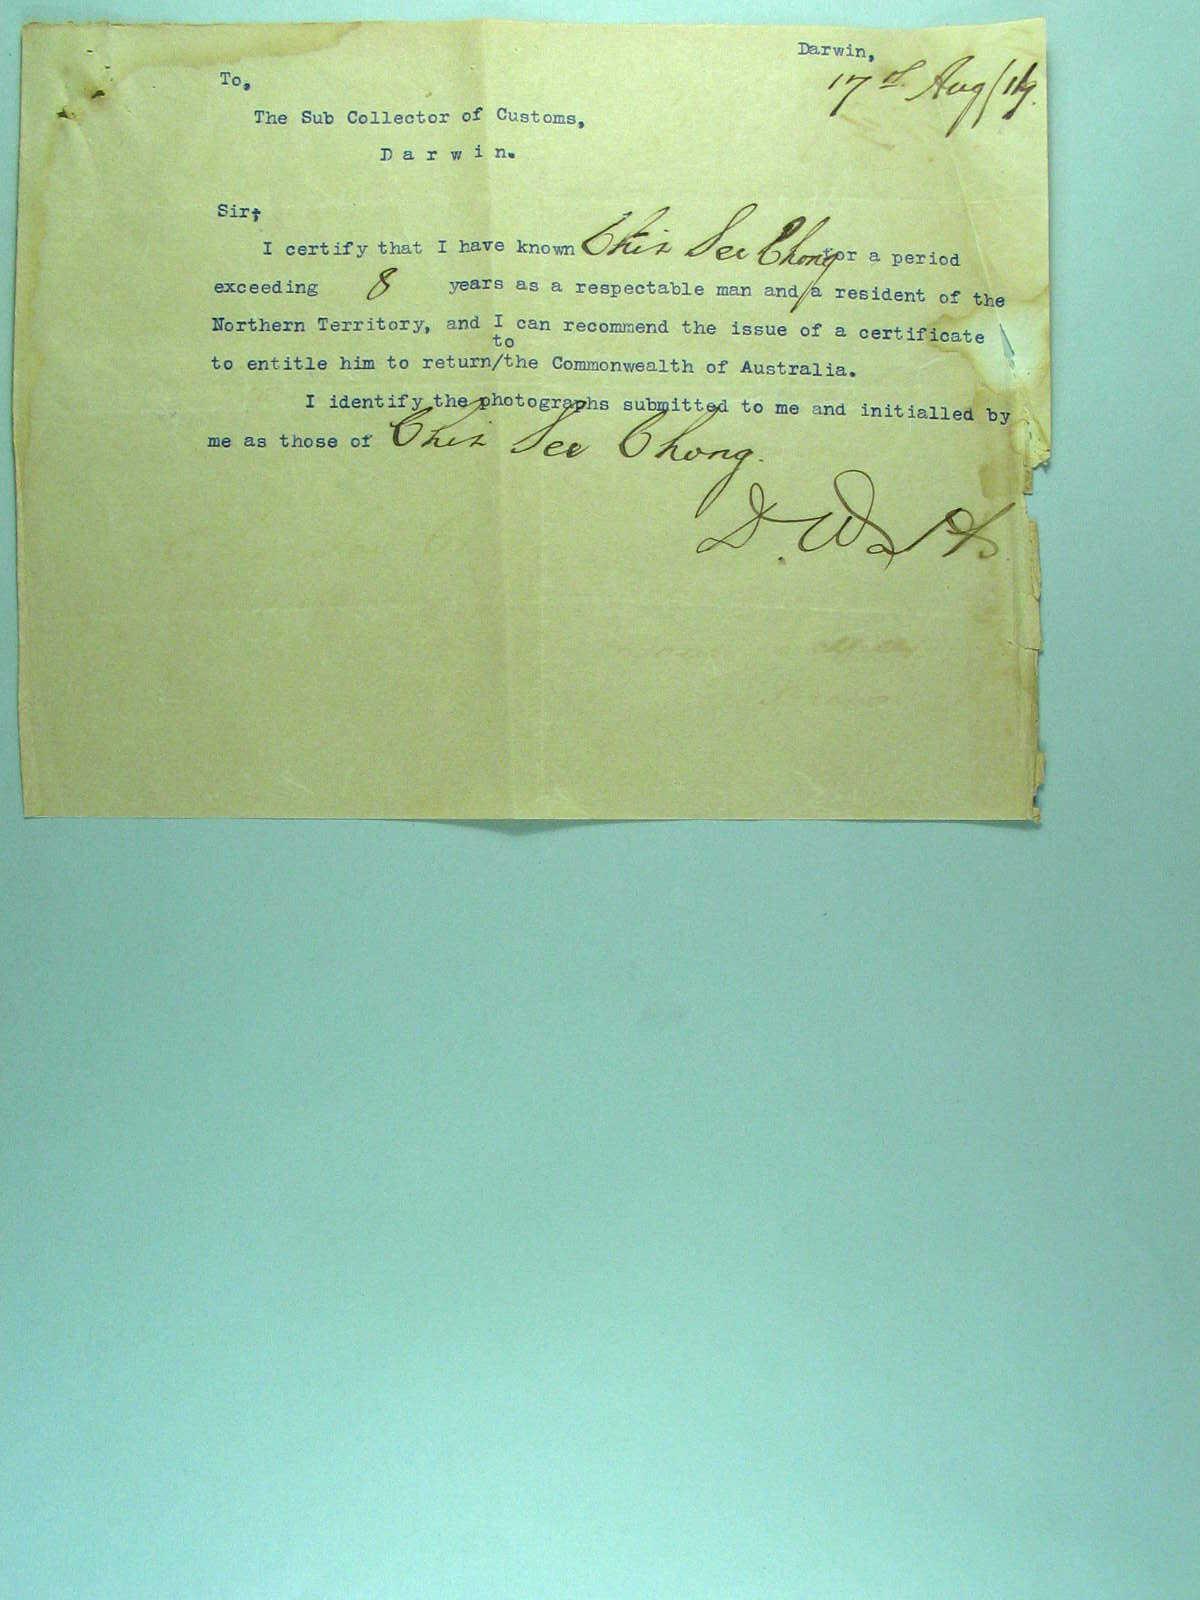 Darwin,
17th Aug/19.
To,
The Sub Collector of Customs,
Darwin.
Sir,
I certify that I have known Chin See Chong for a period
exceeding 8 years as a respectable man and a resident of the
Northern Territory, and I can recommend the issue of a certificate
to
to entitle him to return/the Commonwealth of Australia.
I identify the photographs submitted to me and initialled by
me as those of Chin See Chong.